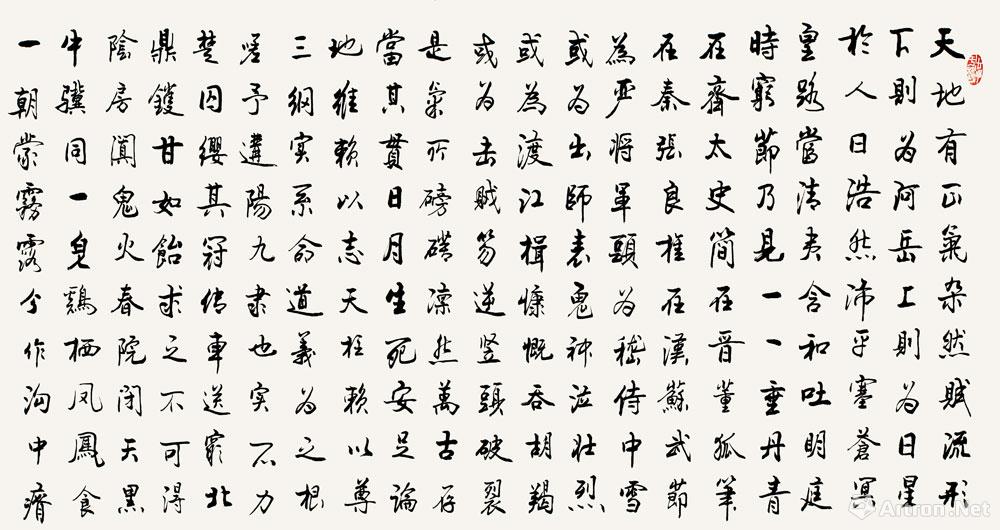 天地有正氣杂然賦流形
下則为河岳上則为日星
於人曰浩然沛乎塞蒼冥
皇路當清夷含和吐明庭
時窮節乃見一一垂丹青
在齊太史简在晋董狐笔
在秦張良椎在漢蘇武節
為严將軍頭为嵇侍中雪
或为出師表鬼神泣壯烈
或為渡江楫慷慨吞胡羯
或为击賊笏逆竖頭破裂
是氣所磅礴凛然萬古存
當其貫日月生死安足論
地維賴以志天柱賴以尊
三綱实系命道義为之根
嗟予遘陽九隶也实不力
楚囚纓其冠传車送窮北
鼎鑊甘如飴求之不可得
陰房闃鬼火春院闭天黑
牛驥同一皂鷄栖凤鳳食
一朝蒙霧露兮作沟中瘠
Artron.Net